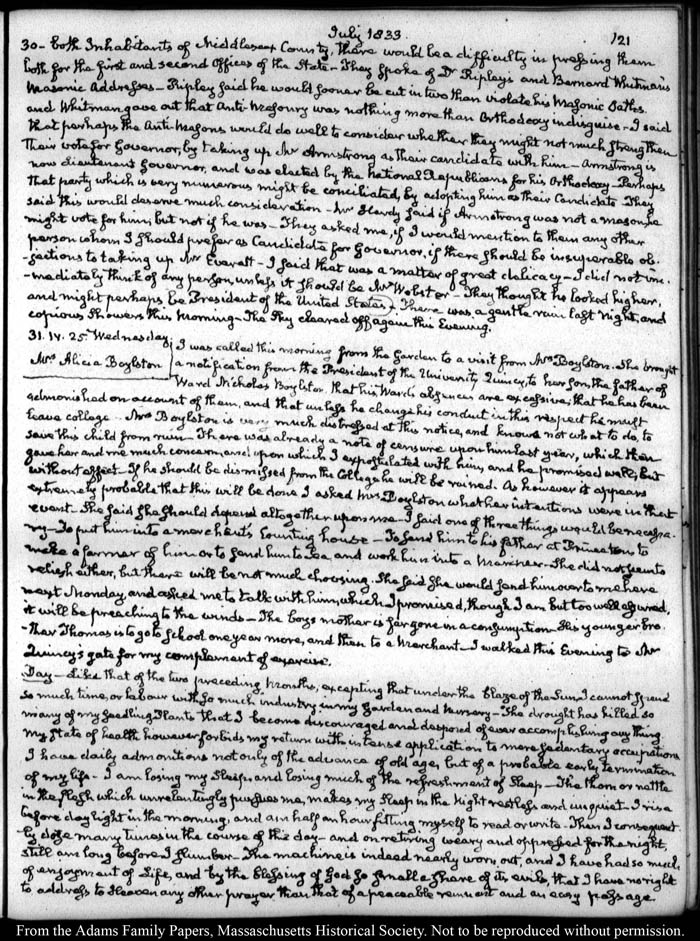 July 1833.
121
30 - both Inhabitants of Middlesex County, there would be a difficulty in pressing them
both for the first and second Offices of the State - They spoke of Dr Ripley's and Bernard Whitman's
Masonic Addresses - Ripley said he would sooner be cut in two than violate his Masonic Oaths
and Whitman gave out that Anti-Masonry was nothing more than Orthodoxy in disguise - I said
that perhaps the Anti-Masons would do well to consider whether they might not much strengthen
their vote for Governor, by taking up Mr Armstrong as their candidate with him - Armstrong is
now Lieutenant Governor, and was elected by the National Republicans for his Orthodoxy - Perhaps
that party which is very numerous might be conciliated, by adopting him as their Candidate - They
said this would deserve much consideration - Mr Hardy said if Armstrong was not a mason, he
might vote for him, but not if he was - They asked me, if I would mention to them any other
person whom I should prefer as Candidate for Governor, if there should be insuperable ob-
-jections to taking up Mr Everett - I said that was a matter of great delicacy - I did not im-
-mediately think of any person, unless it should be Mr Webster - They thought he looked higher,
and might perhaps be President of the United States. There was a gentle rain last night, and
copious showers this Morning - The Sky cleared off again this Evening.
31. IV. 25. Wednesday.
Mrs Alicia Boylston
I was called this morning from the Garden to a visit from Mrs Boylston. She brought
a notification from the President of the University Quincy, to her son, the father of
Ward Nicholas Boylston that his Ward's absences are excessive; that he has been
admonished on account of them, and that unless he change his conduct in this respect he must
leave college - Mrs Boylston is very much distressed at this notice, and knows not what to do, to
save this child from ruin - There was already a note of censure upon him last year, which then
gave her and me much concern, and upon which I expostulated with him, and he promised well; but
without effect. If he should be dismissed from the College he will be ruined. As however it appears
extremely probable that this will be done I asked Mrs Boylston what her intentions were in that
event. She said she should depend altogether upon me - I said one of three things would be necessa-
ry - To put him into a merchant's Counting house - To send him to his father at Princeton, to
make a farmer of him or to send him to Sea, and work him into a Mariner. She did not seem to
relish either, but there will be not much choosing. She said she would send him over to me here
next Monday, and asked me to talk with him; which I promised, though I am but too well assured,
it will be preaching to the winds - The boy's mother is far gone in a consumption - His younger bro-
-ther Thomas is to go to School one year more, and then to a Merchant - I walked this Evening to Mr
Quincy's gate for my complement of exercise.
Day - Like that of the two preceding Months, excepting that under the blaze of the Sun I cannot spend
so much time, or labour with so much industry in my Garden and Nursery - The drought has killed so
many of my seedling Plants that I become discouraged and despond of ever accomplishing any thing
My state of health however forbids my return with intense application to more sedentary occupations
I have daily admonitions not only of the advance of old age, but of a probable early termination
of my life - I am losing my Sleep and losing much of the refreshment of Sleep - The thorn or nettle
in the flesh which unrelentingly pursues me, makes my Sleep in the Night restless and unquiet - I rise
before day light in the morning, and am half an hour fitting myself to read or write - Then I consequent-
-ly doze many times in the course of the day - and on retiring weary and oppressed for the night,
still am long before I slumber - The machine is indeed nearly worn out, and I have had so much
of enjoyment of Life, and by the blessing of God so small a share of its evils, that I have no right
to address to Heaven any other prayer than that of a peaceable remnant and an easy passage.
From the Adams Family Papers, Massachusetts Historical Society. Not to be reproduced without permission.